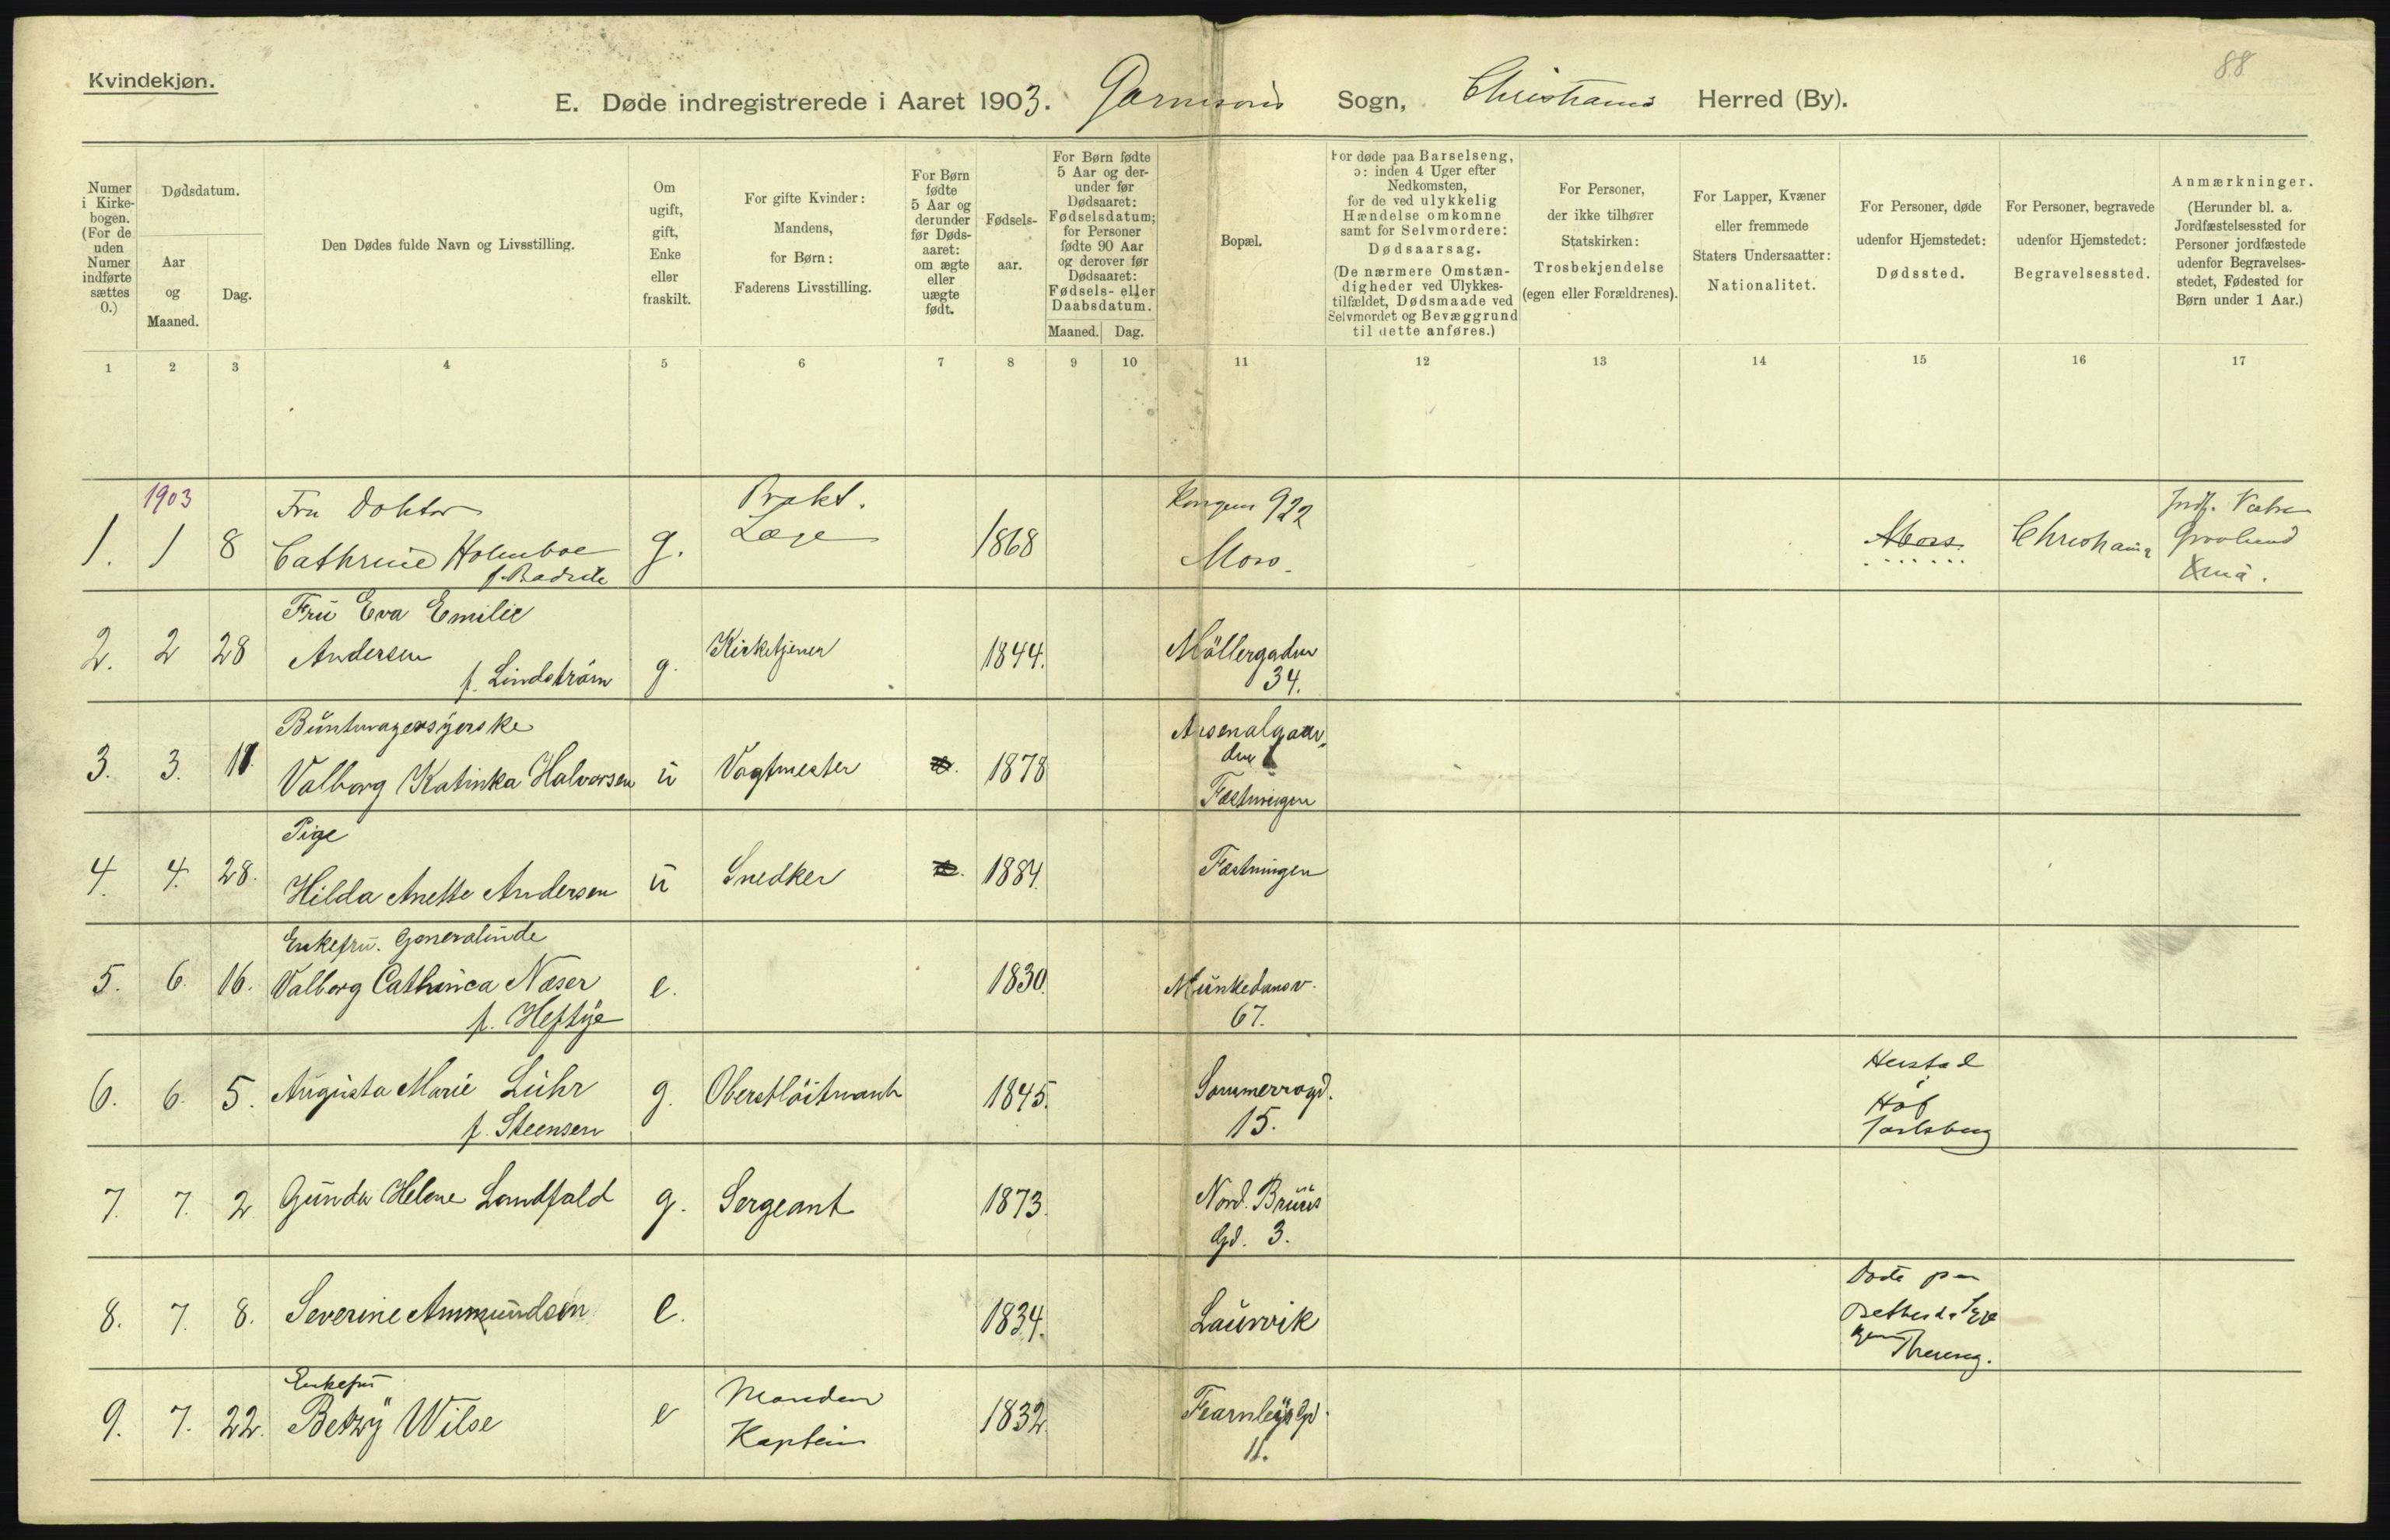 88
Kvindekjøn.
E. Døde indregistrerede i Aaret 1903. Garnisons Sogn, Christiania Herred (By).
Numer i Kirkebogen. (For de uden Numer indførte sættes 0.)
Dødsdatum.
Aar og Maaned.
Dag.
Den Dødes fulde Navn og Livsstilling.
Om ugift, gift, Enke eller fraskilt.
For gifte Kvinder: Mandens, for Børn: Faderens Livsstilling.
For Børn fødte 5 Aar og derunder før Dødsaaret: om ægte eller uægte født.
Fødselsaar.
For Børn fødte 5 Aar og derunder før Dødsaaret: Fødselsdatum; for Personer fødte 90 Aar og derover før Dødsaaret: Fødsels- eller Daabsdatum.
Maaned. Dag.
Bopæl.
For døde paa Barselseng, ɔ: inden 4 Uger efter Nedkomsten, for de ved ulykkelig Hændelse omkomne samt for Selvmordere: Dødsaarsag.
(De nærmere Omstændigheder ved Ulykkestilfældet, Dødsmaade ved Selvmordet og Bevæggrund til dette anføres.)
For Personer, der ikke tilhører Statskirken: Trosbekjendelse (egen eller Forældrenes).
For Lapper, Kvæner eller fremmede Staters Undersaatter: Nationalitet.
For Personer, døde udenfor Hjemstedet: Dødssted.
For Personer, begravede udenfor Hjemstedet: Begravelsessted.
Anmærkninger. (Herunder bl. a. Jordfæstelsessted for Personer jordfæstede udenfor Begravelsesstedet, Fødested for Børn under 1 Aar.)
1 2 3 4 5 6 7 8 9 10 11 12 13 14 15 16 17
1903
1. 1 8 Fru Doktor Cathrine Holmboe g. Prakt. Læge 1868 Kongens 922 Moss. Moss. Christiania
2. 2 28 Fru Eva Emilie Andersen f. Lindström g. Kirketjener 1844. Möllergaden 34.
3. 3. 11. Buntmagersyerske Valborg Katinka Halvorsen u Vagtmester 1878 Arsenalgaarden Fæstningen
4. 4. 28. Pige Hilda Anette Andersen u Snedker 1884. Fæstningen
5. 6. 16. Enkefru. Generalinde Valborg Cathinca Næser f. Heftye e. 1830. Munkedamsv. 67.
6. 6. 5. Augusta Marie Lühr f. Steensen g. Oberstlöitnant 1845. Sommerrogd. 15. Hof Jarlsberg
7. 7. 2 Gunda Helene Landfald g. Sergeant 1873. Nord. Bruuns Gd. 3.
8. 7. 8. Severine Ammundsen e. 1834. Laurvik
9. 7. 22. Enkefru Betzy Wilse e Manden Kaptein 1832 Fearnleys Gd. 11.